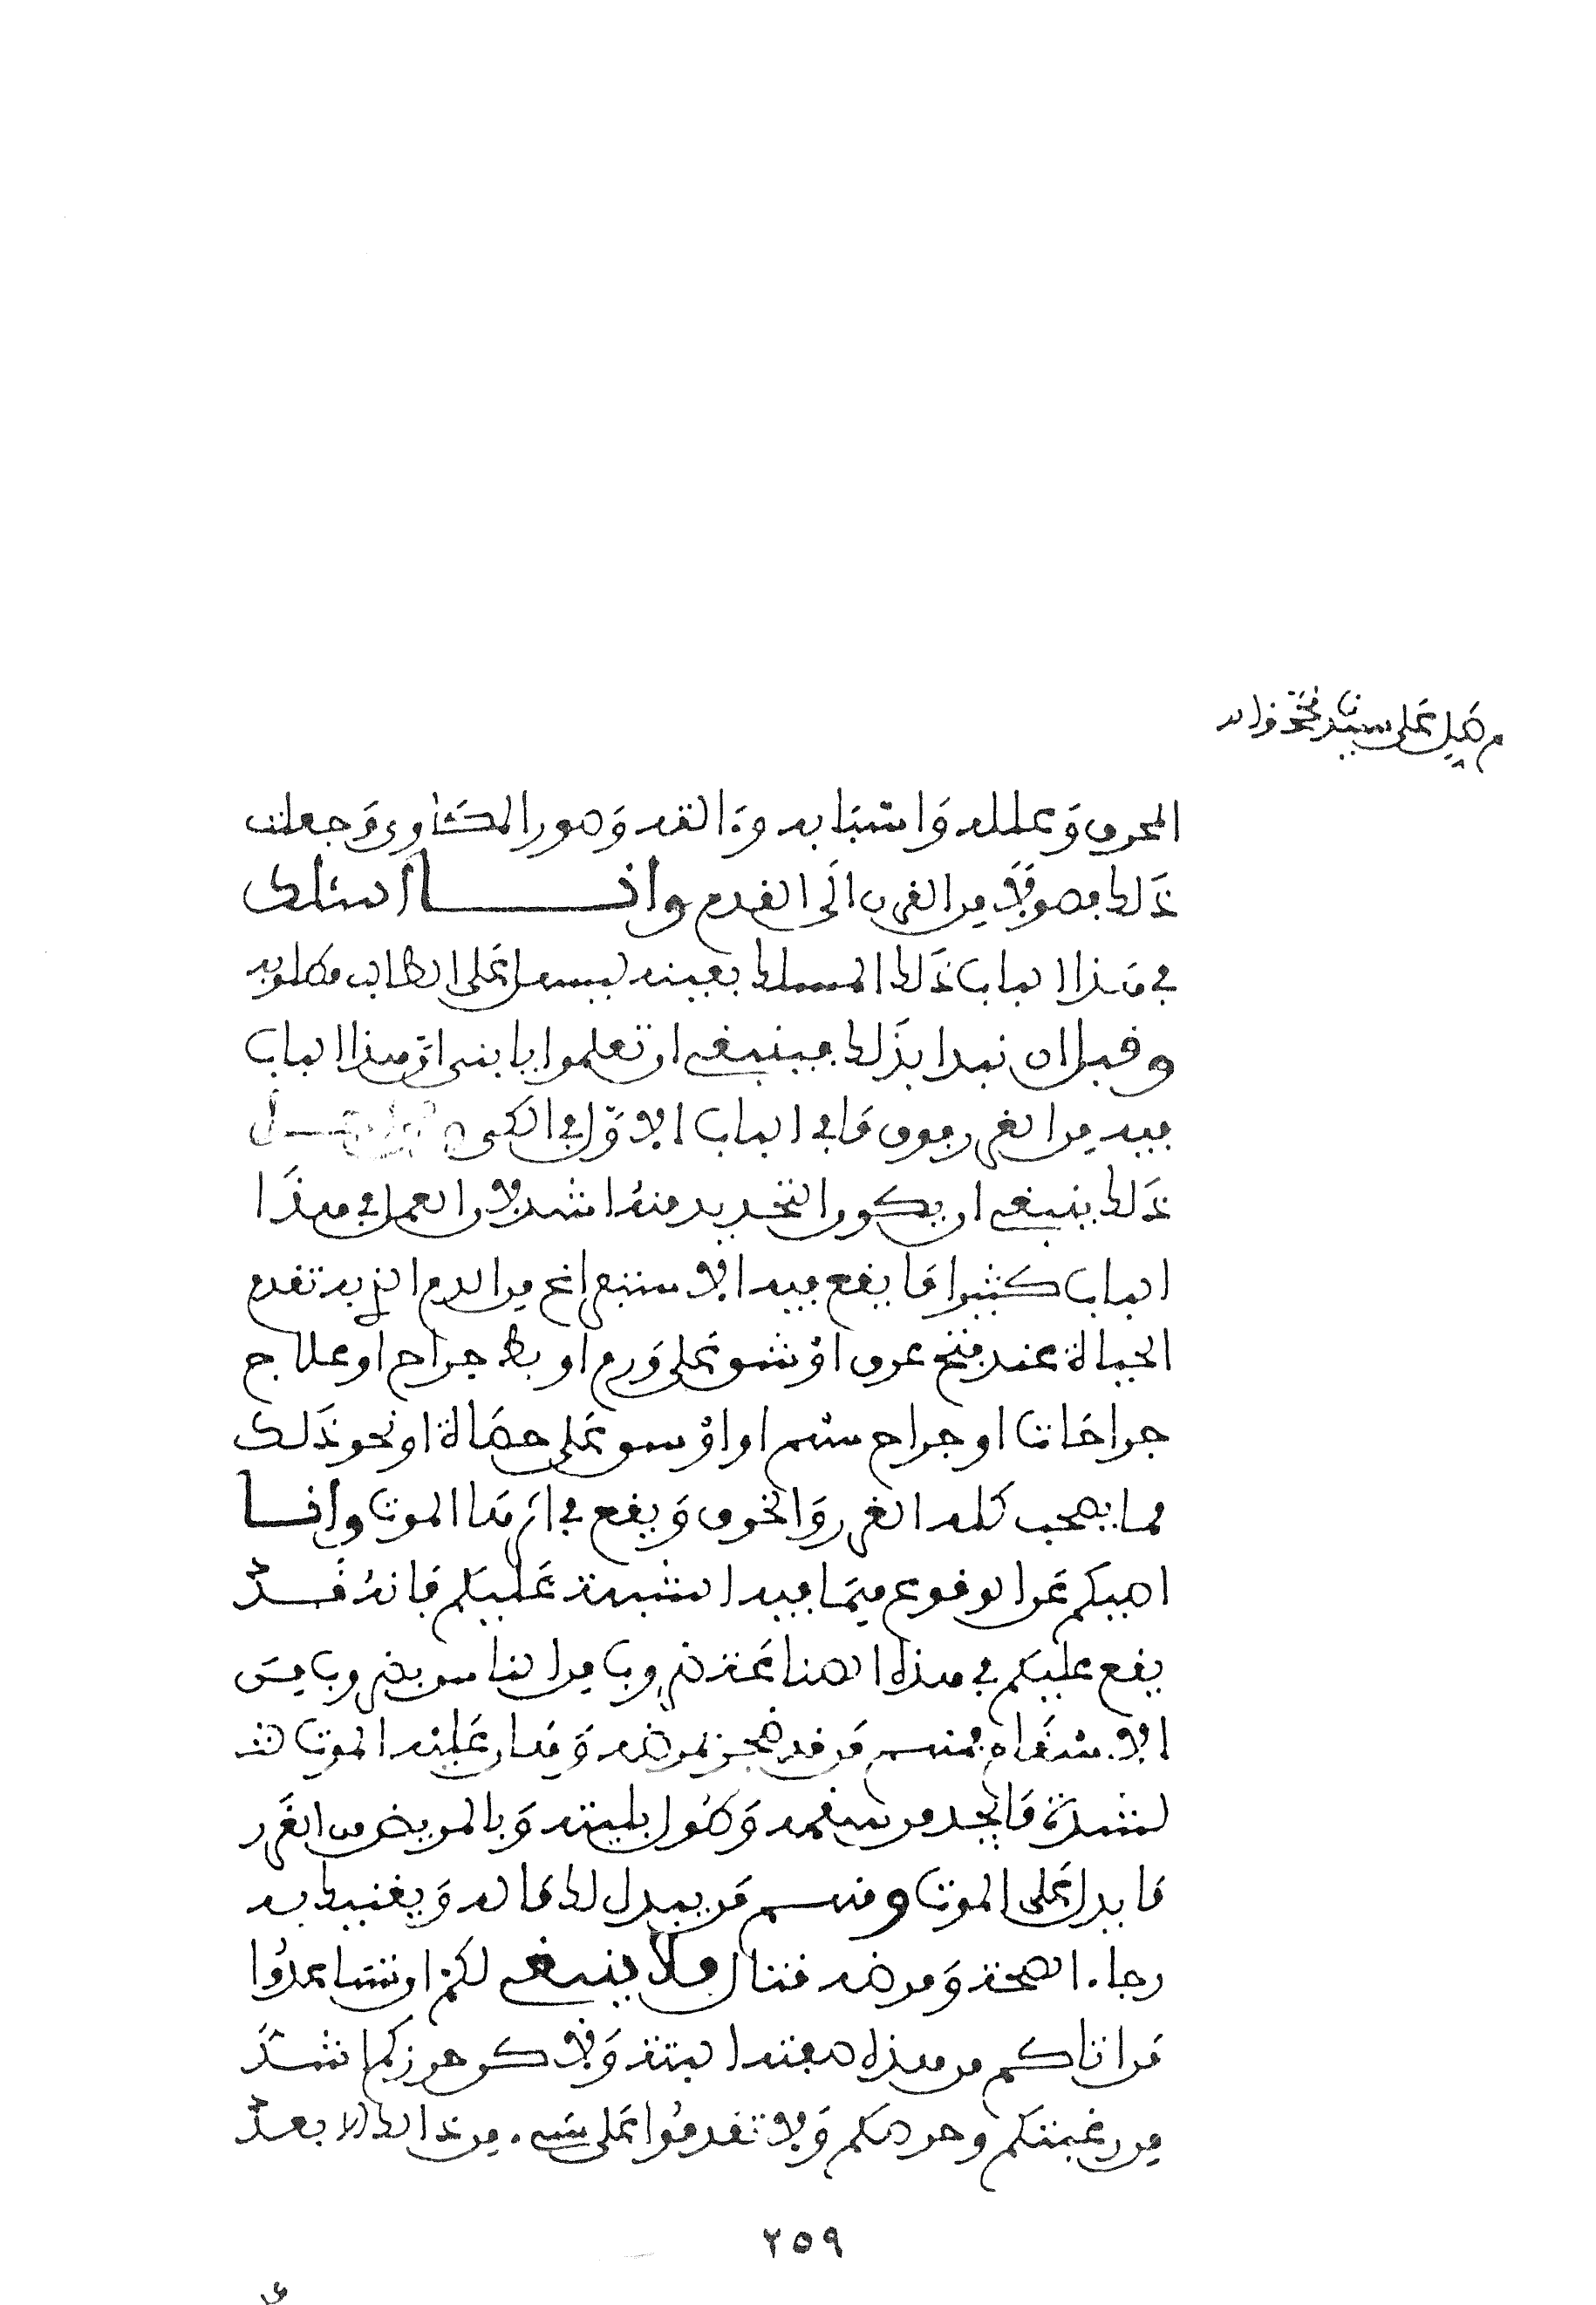 صل على سيدنا محمد واله
المحرق وعلله واسبابه وءالته وصور المكاوى وجعلت
ذلك فصولا من القرن الى القدم وانا اسلك
في هذا الباب ذلك المسلك بعينه ليسهل على الطالب مطلوبه
وقبل ان نبدا بذلك فينبغى ان تعلموا يا بنى ان هذا الباب
فيه من الغرر فوق ما في الباب الاول في الكى
ذلك ينبغى ان يكون التحذير منه اشد لان العمل في هذا
الباب كثيرا ما يقع فيه الاستفراغ من الدم الذي به تقدم
الحياة عند فتح عرق او شق على ورم او بط جراح او علاج
جراحات او جراح سهم او او سق على حصاة او نحو ذلك
مما يصحب كله الغرر والخوف ويقع في اكثرها الموت وانا
اصيكم عن الوقوع فيما فيه الشبهة عليكم فانه قد
يقع عليكم في هذه الصناعة ضروب من الناس بضروب من
الاسقام فمنهم من قد ضجر بمرضه وهان عليه الموت
لشدة ما يجد من سقمه وطول بليته وبالمريض من الغرر
ما يدل على الموت ومنهم من يبدل لك ماله ويغنيك به
رجاء الصحة ومرضه قتال فلا ينبغى لكم ان تساعدوا
من اتاكم من هذه صفته البتة ولاكن حرزكم اشد
من رغبتكم وحرصكم ولا تقدموا على شىء من ذالك الا بعد
٢٥٩